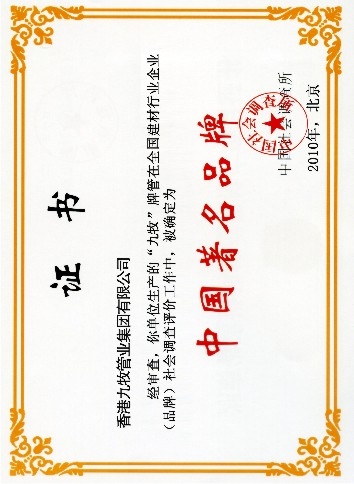 证书
香港九牧管业集团有限公司
经审查，你单位生产的“九牧”牌管在全国建材行业企业
（品牌）社会调查评价工作中，被确定为
中国著名品牌
中国社会调查所
2010年，北京
中国社会调查所